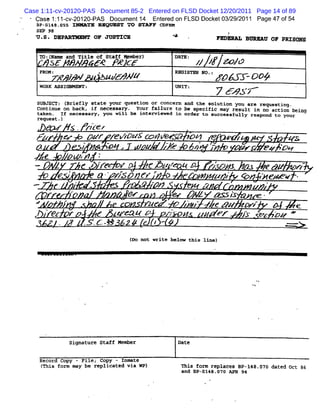 Case 1:11-cv-20120-PAS Document 85-2 Entered on FLSD Docket 12/20/2011 Page 14 of 89
Case 1:11-cv-20120-PAS Document 14 Entered on FLSD Docket 03/29/2011 Page 47 of 54
BP-S148.055 INMATE REQUEST TO STAFF CDFRM
SEP 98
U.S. DEPARTMENT OF JUSTICE FEDERAL BUREAU OF PRISONS
TO: (Name and Title of Staff Member)
CASE MANAGER PRICE
DATE:
11/18/2010
FROM:
TRAIAN BUJDUVEANU
REGISTER NO.:
80655-004
WORK ASSIGNMENT:
UNIT:
7 EAST
SUBJECT: (Briefly state your question or concern and the solution you are requesting.
Continue on back, if necessary. Your failure to be specific may result in no action being
taken. If necessary, you will be interviewed in order to successfully respond to your
request.)
Dear Ms Price:
Further to our previous conversation regarding my status
and Designation, I would like to bring into your attention
the following:
- ONLY The Director of the Bureau of Prisons has the authority
to designate a prisoner into the community confinement.
- The United States Probation System and Community
Correctional Manager can offer ONLY assistance.
"Nothing shall be construed to limit the authority of the
Director of the Bureau of prisons under this section"
3621, 18 U.S.C. § 3624 (c)(1)-(4)
(Do not write below this line)
Signature Staff Member
Date
Record Copy - File; Copy - Inmate
(This form may be replicated via WP)
This form replaces BP-148.070 dated Oct 86
and BP-S148.070 APR 94